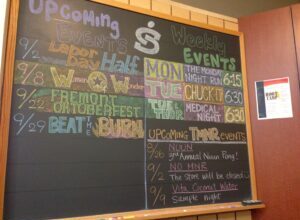 Upcoming
EVENTS
9/2 Labor Day Half
9/8
9/22 FREMONT OKTOBERFEST
9/29 BEAT the BURN
Weekly
EVENTS
MON THE MONDAY NIGHT RUN 6:15
TUE CHUCK IT 6:30
TUE MEDICAL NIGHT 6:30
UPCOMING TMNR EVENTS
8/26 NUUN
3rd Annual Nuun Pong!
9/2 NO MNR
The store will be closed
9/9 Vita Coconut Water
Sample Night